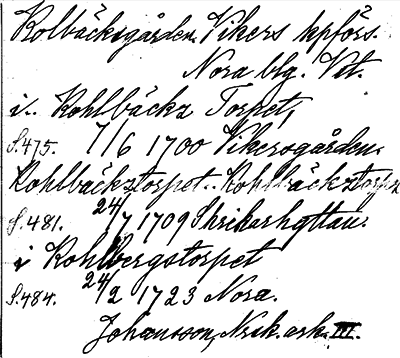 Kolbäcksgården. Vikers kpförs.
Nora blg. Vst.
i. Kohlbäckz Torpet,
S.475. 7/6 1700 Vikersgården.
Kohlbäckztorpet. Kohlbäckztorpz
S.481. 24/7 1709 Skrikarhyttan.
i Kohlbergstorpet
S.484. 24/2 1723 Nora.
Johansson, Nrik. ark. III.